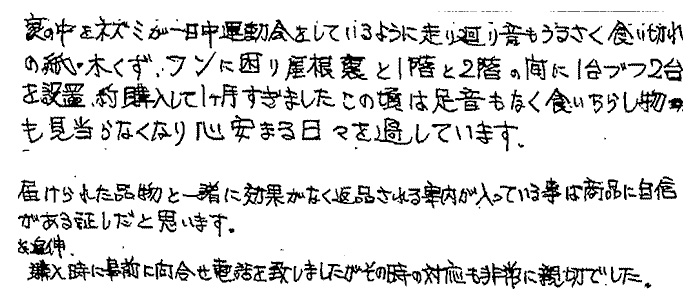 家の中をネズミが一日中運動会をしているように走り廻り音もうるさく食い切れ
の紙・木くず、フンに困り屋根裏と1階と2階の間に1台づつ2台
を設置、約購入して1ヶ月すぎました この頃は足音もなく食いちらし物
も見当らなくなり心安まる日々を過しています。
届けられた品物と一緒に効果がなく返品される案内が入っている事は商品に自信
がある証しだと思います。
追伸
購入時に事前に問合せ電話を致しましたがその時の対応も非常に親切でした。